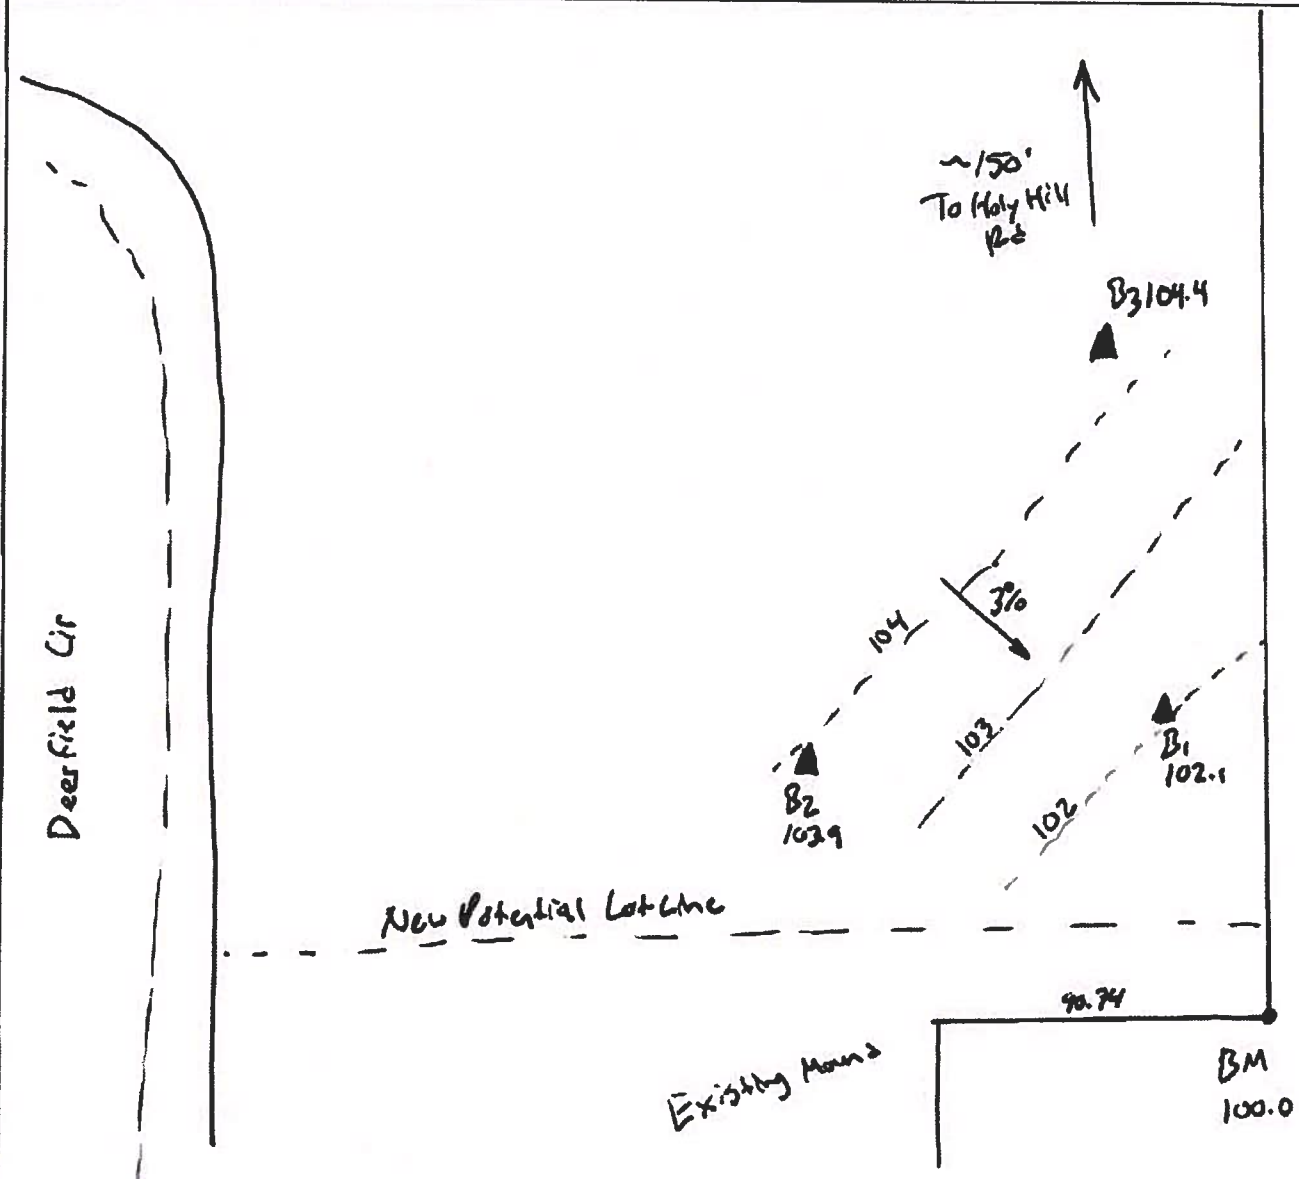 ~150'
To Holy Hill
Rd
B3 104.4
3%
104
103
B1
102.1
102
B2
103.9
Deerfield Cir
New Potential Lot Line
90.74
Existing Mound
BM
100.0